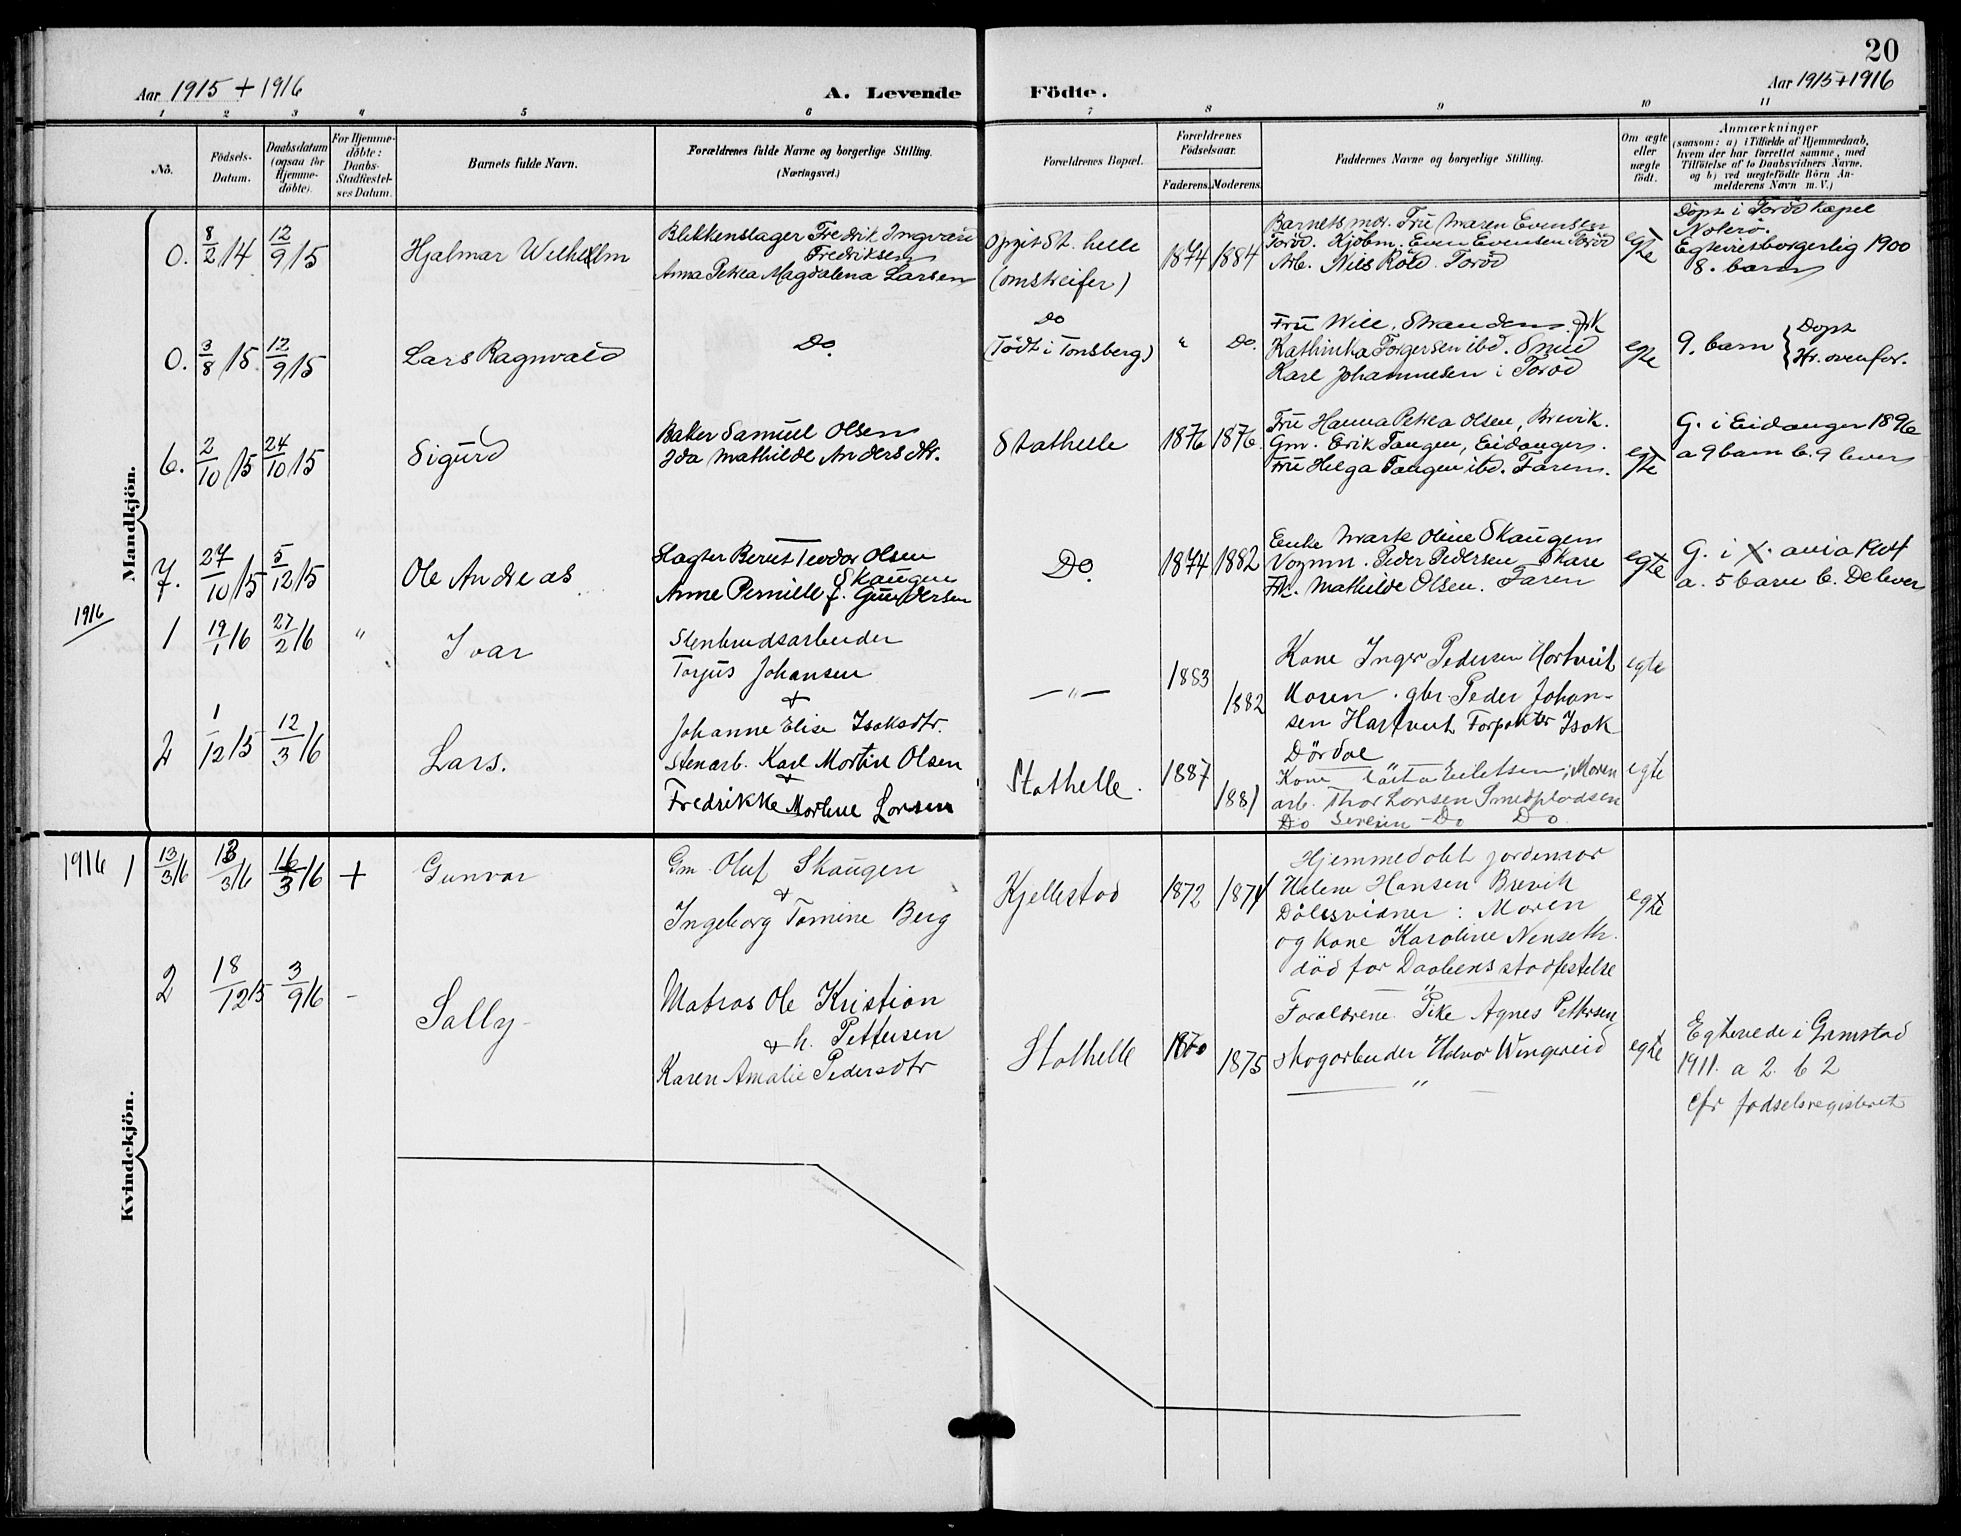 20
Aar 1915 + 1916
A. Levende
Födte.
Aar 1915+1916
1 2 3 4 5 6 7 8 9 10 11
No.
Födsels-
Datum.
Daabsdatum
(ogsaa for
Hjemme-
döbte).
For Hjemme-
döbte:
Daabs-
Stadfæstel-
ses Datum.
Barnets fulde Navn.
Forældrenes fulde Navne og borgerlige Stilling.
(Næringsvei.)
Forældrenes Bopæl.
Forældrenes
Födselsaar.
Faderens. Moderens.
Faddernes Navne og borgerlige Stilling.
Om ægte
eller
uægte
födt.
Anmærkninger
(saasom: a) i Tilfælde af Hjemmedaab,
hvem der har forrettet samme, med
Tilföielse af to Daabsvidners Navne.
og b) ved uægtefödte Börn An-
melderens Navn m. V.)
Mandkjön.
0. 8/2 14 12/9 15
Hjalmar Wilhelm
Blikkenslager Fredrik Ingvard
Fredriksen
Anna Petrea Magdalena Larsen
Opgit St. helle
(omstreifer)
1874 1884
Barnets mor. Fru Maren Evensen
Toröd. Kjöbm. Even Evensen Toröd
Arb. Nils Röed. Toröd
egte
Döpt i Toröd Kapel
Noterö.
Egteviet borgerlig 1900
8. barn
0. 3/8 15 12/9 15
Lars Ragnvald
Do.
Do
(Födt i Tonsberg)
" Do.
Fru Will. Strandens. Frk
Kathinka Torgersen ibd. Smed
Karl Johannesen i Toröd
egte
9. barn
Döpt
Hr. ovenfor.
6. 2/10 15 24/10 15
Sigurd
Baker Samuel Olsen
Ida Mathilde Andersdtr.
Stathelle
1876 1876
Fru Hanna Petrea Olsen, Brevik.
Gm. Erik Tangen, Eidanger.
Fru Helga Tangen ibd. Faren.
egte
G. i Eidanger 1896
a 9 barn b. 9 lever
7. 27/10 15 5/12 15
Ole Andreas
Slagter Bernt Teodor Olsen
Skaugen
Anne Pernille f. Gundersen
Do.
1874 1882
Enke Marte Oline Skaugen
Vognm. Peder Pedersen Skare
Frk. Mathilde Olsen. Faren
egte
G. i X. ania 1904
a. 5 barn b. De lever
1916
1 19/1 16 27/2 16 "
Ivar
Stenbrudsarbeider
Torjus Johansen
+
Johanne Elise Isaksdtr.
—"—
1883
1882
Kone Inger Pedersen Hortveit
Moren. gbr. Peder Johan-
sen Hartveit Forpakter Isak
Dördal
egte
2 1/12 15 12/3 16
Lars.
Stenarb. Karl Martin Olsen
+
Fredrikke Martine Larsen
Stathelle.
1887
1881
Kone Eilertsen, Moren
arb. Thor Larsen Smedpladsen
Do Do Do
egte
Kvindekjön.
1916 1 13/3 16 13/3 16 16/3 16 +
Gunvor
Gm. Oluf Skaugen
+
Ingeborg Tomine Berg
Kjellestad
1872 1874
Hjemmedöbt jordemor
Helene Hansen Brevik
Döbsvidner: Moren
og Kone Karoline Nenseth.
död för Daabens stadfestelse
egte
2 18/12 15 3/9 16 -
Sally
Matros Ole Kristian
+ h. Pettersen
Karen Amalie Pedersdtr
Stathelle
1870
1875
Foraldrene. Pike Agnes Pettersen
Skogarbeider Halvor Wingereid
"
egte
Egteviede i Grimstad
1911. a 2. b 2
cfr födselsregisteret